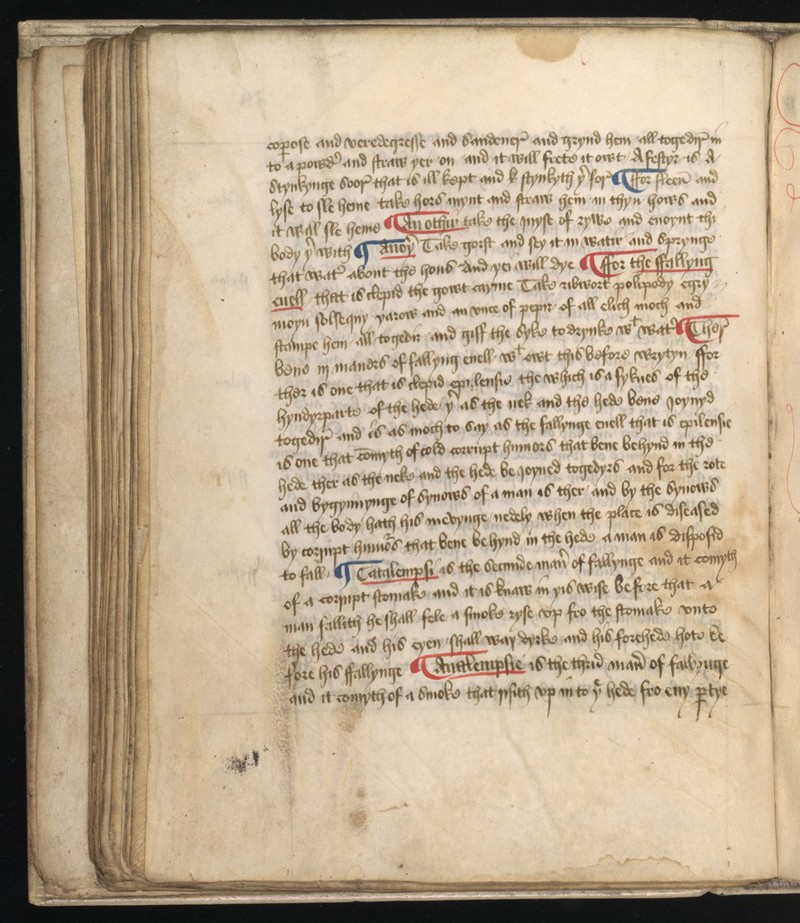 copose and veredegresse and sandener and grynd hem all togedir in
to a powdr and straw yer on and it will frete it owt A festyr is A
stynkynge soor that is ill kept and stynkyth yer for ¶ ffor fleen and
lyse to sle heme take hors mynt and straw hem in thyn hows and
it wal sle heme ¶ An othir take the Iuyse of rywe and enoynt thi
body yer with ¶ A noyer Take gorst and sey it in watir and sprynge
that watr about the hous And yei will dye ¶ ffor the ffallyng
euell that is clepid the gowt cayue Take ribwort polipody egry
moyn solsequy yarow and an vnce of pepir of all elich moch and
stampe hem all togedir and giff the syke to drynke wt watr ¶ Ther
bene iij maners of fallyng euell wt owt this before wrytyn ffor
ther is one that is clepid epilensie the which is a sykнes of the
hyndyrparte of the hede yer as the nek and the hede bene Joynyd
togedir and is as moch to say as the fallynge euell that is epilensie
is one that comyth of cold corrupt humors that bene behynd in the
hede ther as the neke and the hede be joyned togedyrs and for the rote
and bygynnynge of synows of a man is ther and by the synows
all the body hath his mevynge nedely when the place is diseased
by corrupt humors that bene behynd in the hede a man is disposid
to fall ¶ Catalempsi is the secunde maner of fallynge and it comyth
of a corrupt stomake and it is knaw in yis wise Before that a
man fallith he shall fele a smoke ryse vp fro the stomake vnto
the hede and his eyen shall wax dyrke and his forehede hote be
fore his ffallynge ¶ Analempsie is the thrid maner of fallynge
and it comyth of a smoke that risith vp in to ye hede fro eny partye